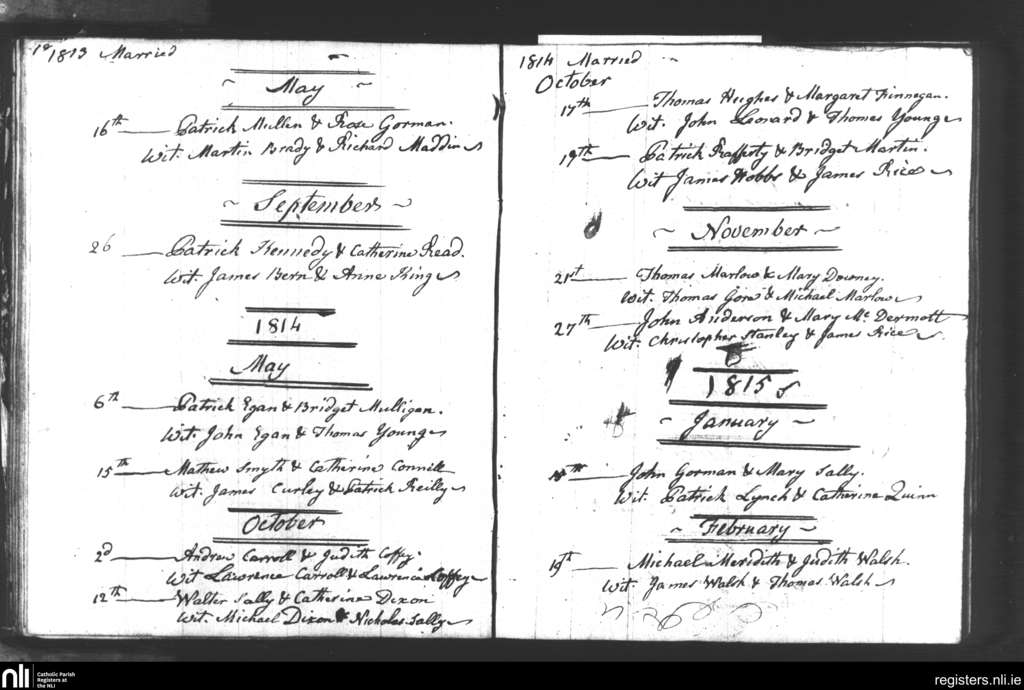 1813 Married
May
16th Patrick Mullen & Rose Gorman.
Wit. Martin Brady & Richard Maddin
September
26 Patrick Kennedy & Catherine Read.
Wit. James Bern & Anne King
1814
May
6th Patrick Egan & Bridget Mulligan.
Wit. John Egan & Thomas Young
15th Mathew Smyth & Catherine
Wit. James Curley & Patrick Reilly
October
2d Andrew Carroll & Judith Coffey.
Wit Lawrence Carroll & Lawrence Coffey
12th Walter Sally & Catherine Dixon
Wit. Michael Dixon & Nicholas Sally
1814 Married
October
17th Thomas Hughes & Margaret Finnegan.
Wit. John Leonard & Thomas Young
19th Patrick Rafferty & Bridget Martin.
Wit James Hobbs & James Rice
November
21st Thomas Marlow & Mary Downey.
Wit. Thomas Gore & Michael Marlow
27th John Anderson & Mary Mc Dermott
Wit. Christopher Stanley & James Rice
1815
January
John Gorman & Mary Sally.
Wit. Patrick Lynch & Catherine Quinn
February
19th Michael Meridith & Judith Walsh.
Wit. James Walsh & Thomas Walsh
nli Catholic Parish
Registers at
the NLI
registers.nli.ie